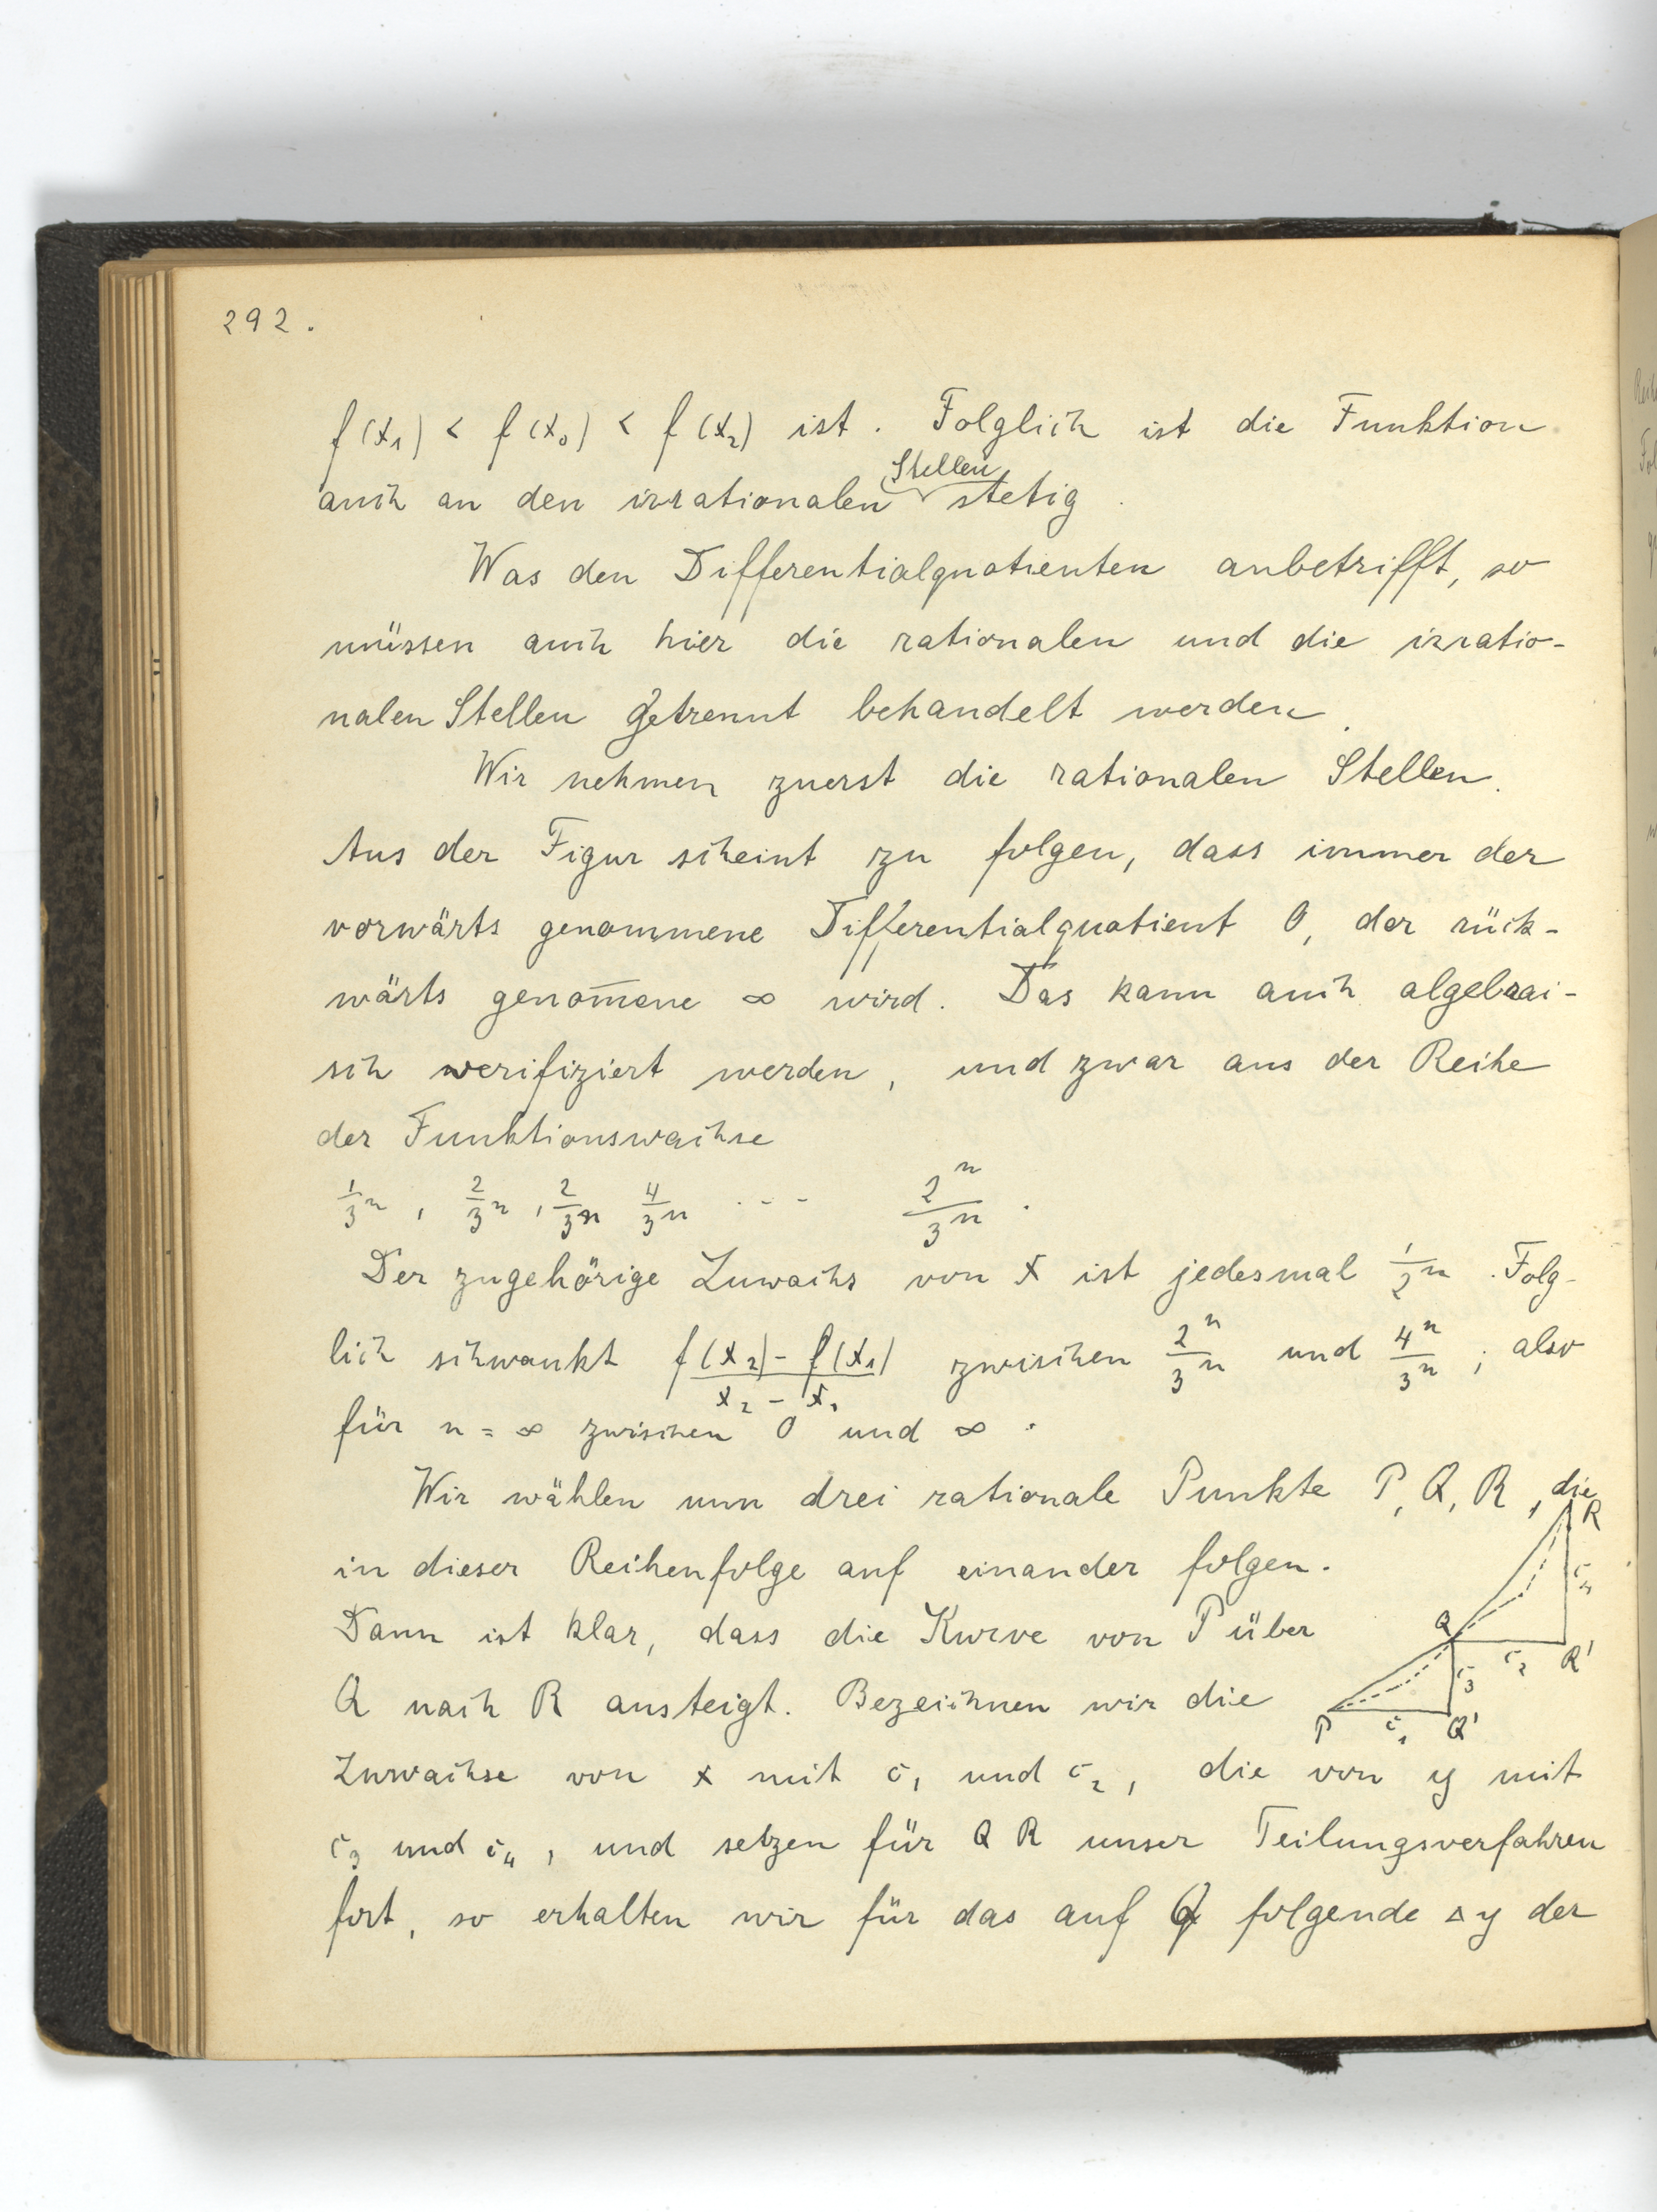 292.
f(x₁) < f(x₀) < f(x₂) ist. Folglich ist die Funktion
Stellen
auch an den irrationalen stetig.
Was den Differentialquotienten anbetrifft, so
müssen auch hier die rationalen und die irratio-
nalen Stellen getrennt behandelt werden.
Wir nehmen zuerst die rationalen Stellen.
Aus der Figur scheint zu folgen, dass immer der
vorwärts genommene Differentialquotient 0, der rück-
wärts genom̅ene ∞ wird. Das kann auch algebrai-
sch werifiziert werden, und zwar aus der Reihe
der Funktionswachse
1/3ⁿ, 2/3ⁿ, 2/3ⁿ 4/3ⁿ --- 2ⁿ/3ⁿ.
Der zugehörige Zuwachs von x ist jedesmal 1/2ⁿ. Folg-
lich schwankt (f(x₂) - f(x₁))/(x₂ - x₁) zwischen 2ⁿ/3ⁿ und 4ⁿ/3ⁿ; also
für n = ∞ zwischen 0 und ∞.
Wir wählen nun drei rationale Punkte P, Q, R, die
in dieser Reihenfolge auf einander folgen.
Dann ist klar, dass die Kurve von P über
Q nach R ansteigt. Bezeichnen wir die
Zuwachse von x mit c₁ und c₂, die von y mit
c₃ und c₄, und setzen für Q R unser Teilungsverfahren
fort, so erhalten wir für das auf Q folgende Δy der
R
c₄
Q
c₂ R'
c₃
P c₁ Q'